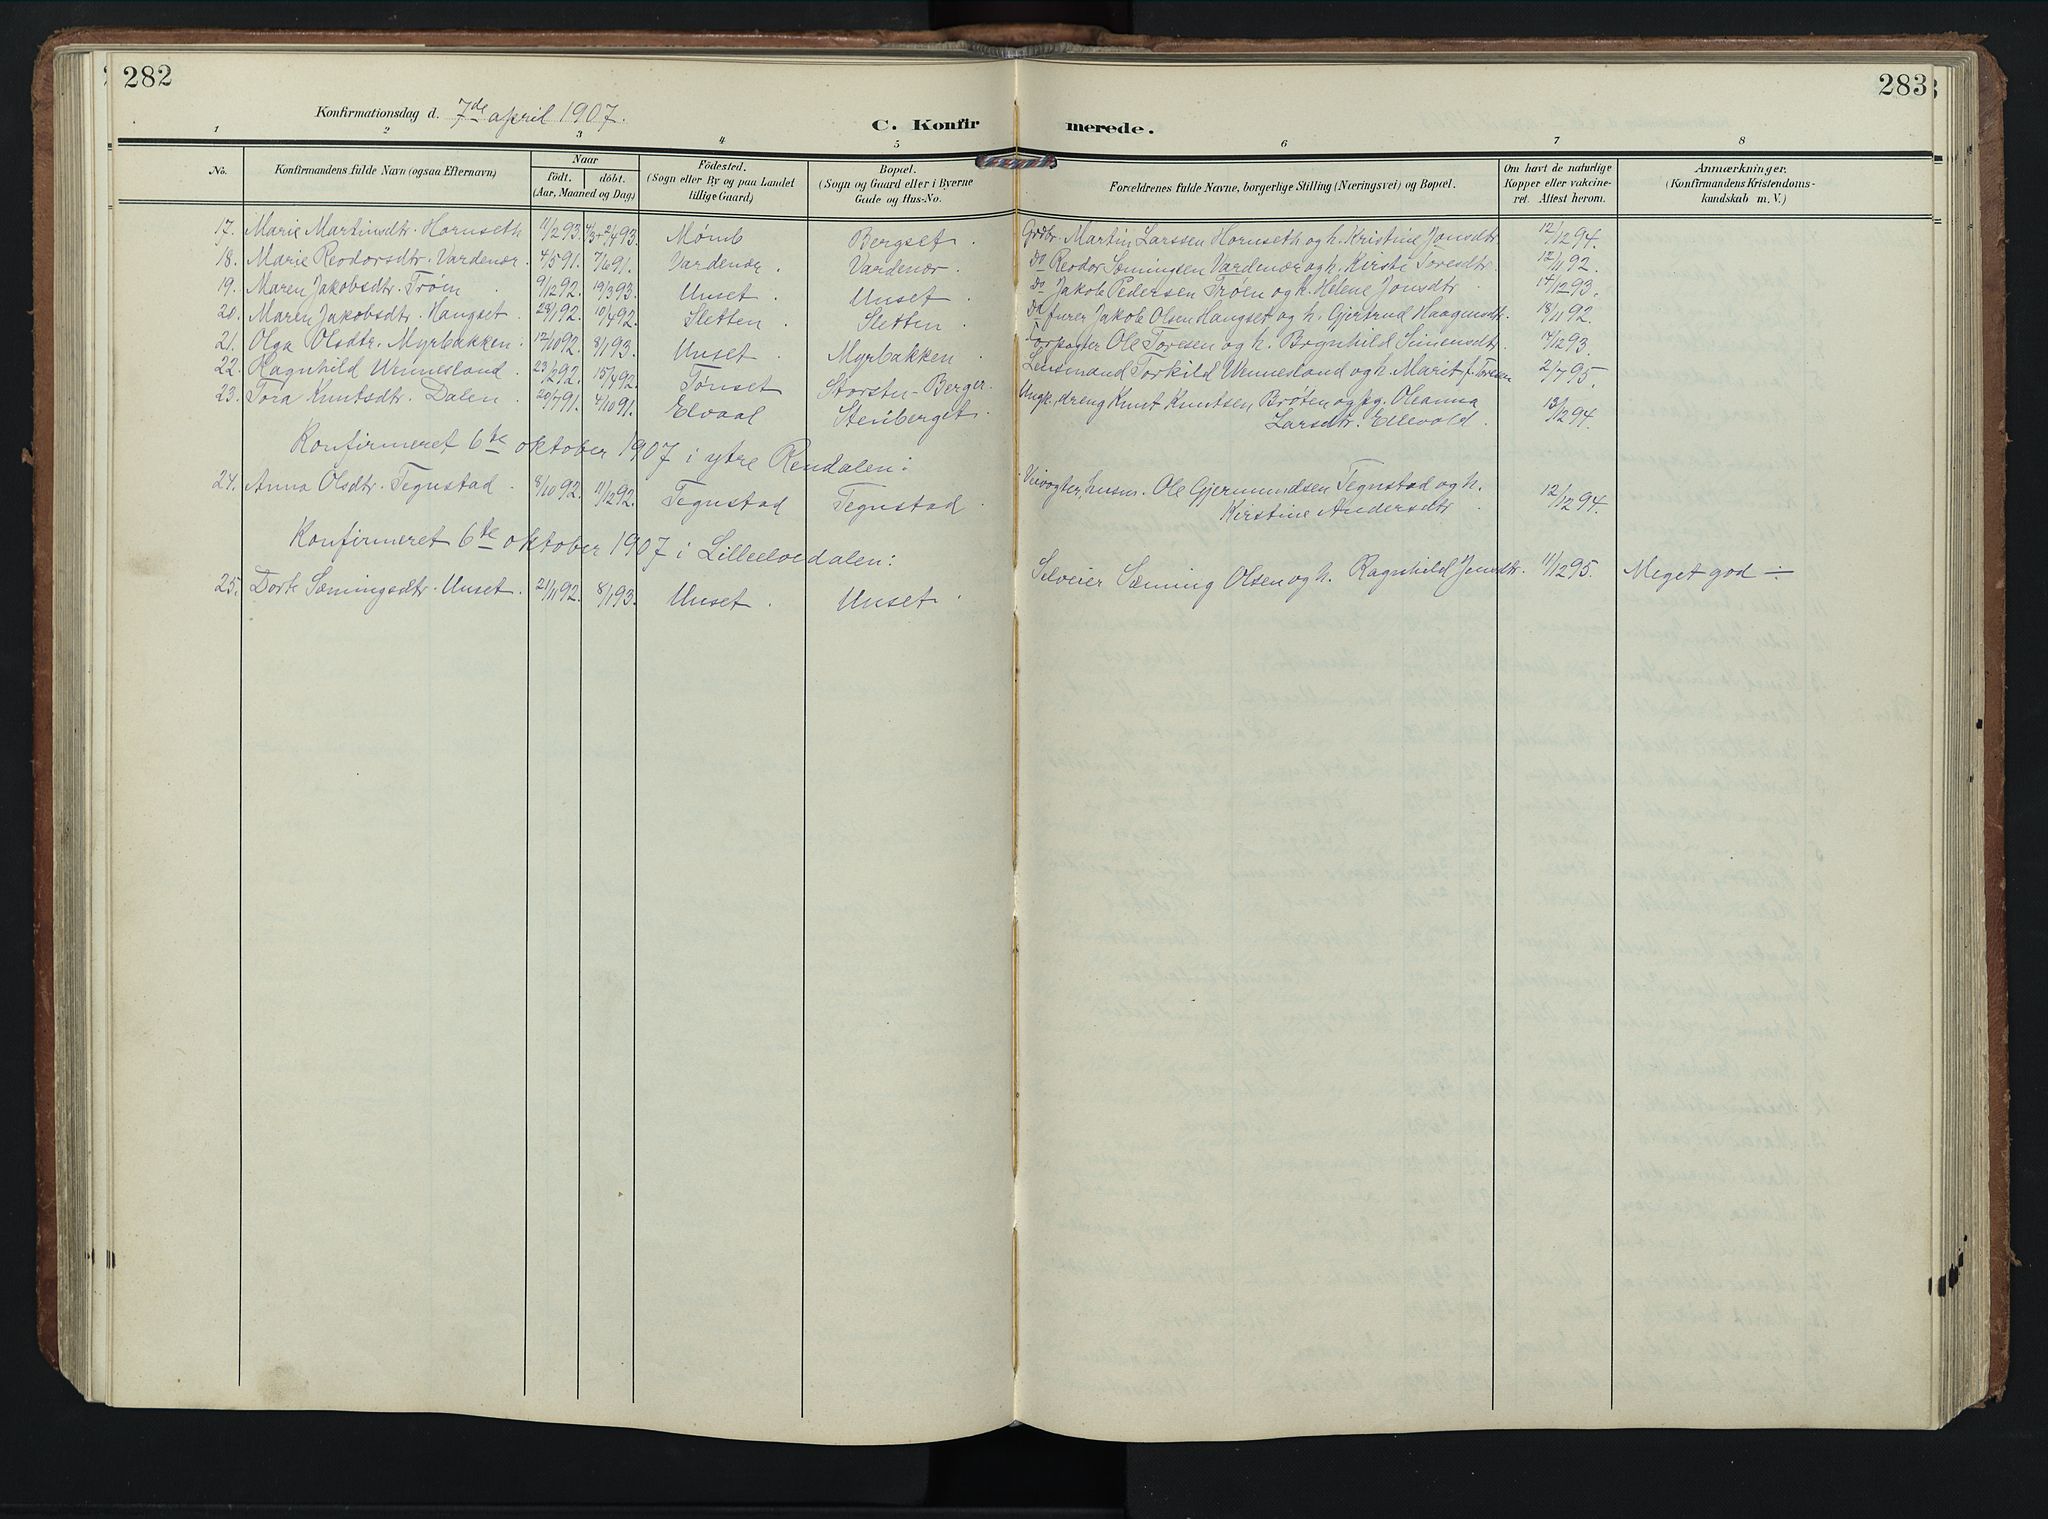 282
283
Konfirmationsdag d. 7de april 1907.
C. Konfirmerede.
1 2 3 4 5 6 7 8
No. Konfirmandens fulde Navn (ogsaa Efternavn) Naar født. døbt. (Aar, Maaned og Dag) Fødested. (Sogn eller By og paa Landet tillige Gaard) Bopæl. (Sogn og Gaard eller i Byerne Gade og Hus-No. Forældrenes fulde Navne, borgerlige Stilling (Næringsvei) og Bopæl. Om havt de naturlige Kopper eller vakcineret. Attest herom. Anmærkninger. (Konfirmandens Kristendomskundskab m. V.)
17. Marie Martinsdtr. Hornseth 11/2 93. 4/3 + 2/4 93. Bergset. Grdbr. Martin Larssen Hornseth og h. Kristine Jonsdtr. 12/12 94.
18. Marie Reodorsdtr. Vardenær. 4/5 91. 7/6 91. Vardenær. Vardenær. Do Reodor Sæmingsen Vardenær og h. Kirsti Toresdtr. 12/11 92.
19. Maren Jakobsdtr. Trøen. 9/12 92. 19/3 93. Unset. Unset. Do Jakob Pedersen Trøen og h. Helene Jonsdtr. 14/12 93.
20. Maren Jakobsdtr. Hangset. 28/1 92. 10/4 92. Sletten. Sletten. Do furer Jakob Olsen Hangset og h. Gjertrud Haagensdtr. 18/11 92.
21. Olga Olsdtr. Myrbakken. 12/10 92. 8/1 93. Unset. Myrbakken. Ole Toresen og h. Brynhild Simensdtr. 14/12 93.
22. Ragnhild Wennesland. 23/2 92. 15/4 92. Tønset Storstu-Berger. Lensmand Torkild Wennesland og h. Marit f. Toresen 2/7 95.
23. Tora Knutsdtr. Dalen. 20/7 91. 4/10 91. Elvaal Stenberget. Ungk., dreng Knut Knutsen Brøten og pg. Oleanna
Larsdtr. Ellevold. 13/12 94.
Konfirmeret 6te oktober 1907 i ytre Rendalen:
24. Anna Olsdtr. Tegnstad. 8/10 92. 11/12 92. Tegnstad Tegnstad. Veivogter, husm. Ole Gjermundsen Tegnstad og h.
Kirstine Andersdtr. 12/12 94.
Konfirmeret 6te oktober 1907 i Lilleelvedalen:
25. Dorte Sæmingsdtr. Unset. 21/11 92. 8/1 93. Unset. Unset. Selveier Sæming Olsen og h. Ragnhild Jonsdtr. 11/12 95. Meget god ÷